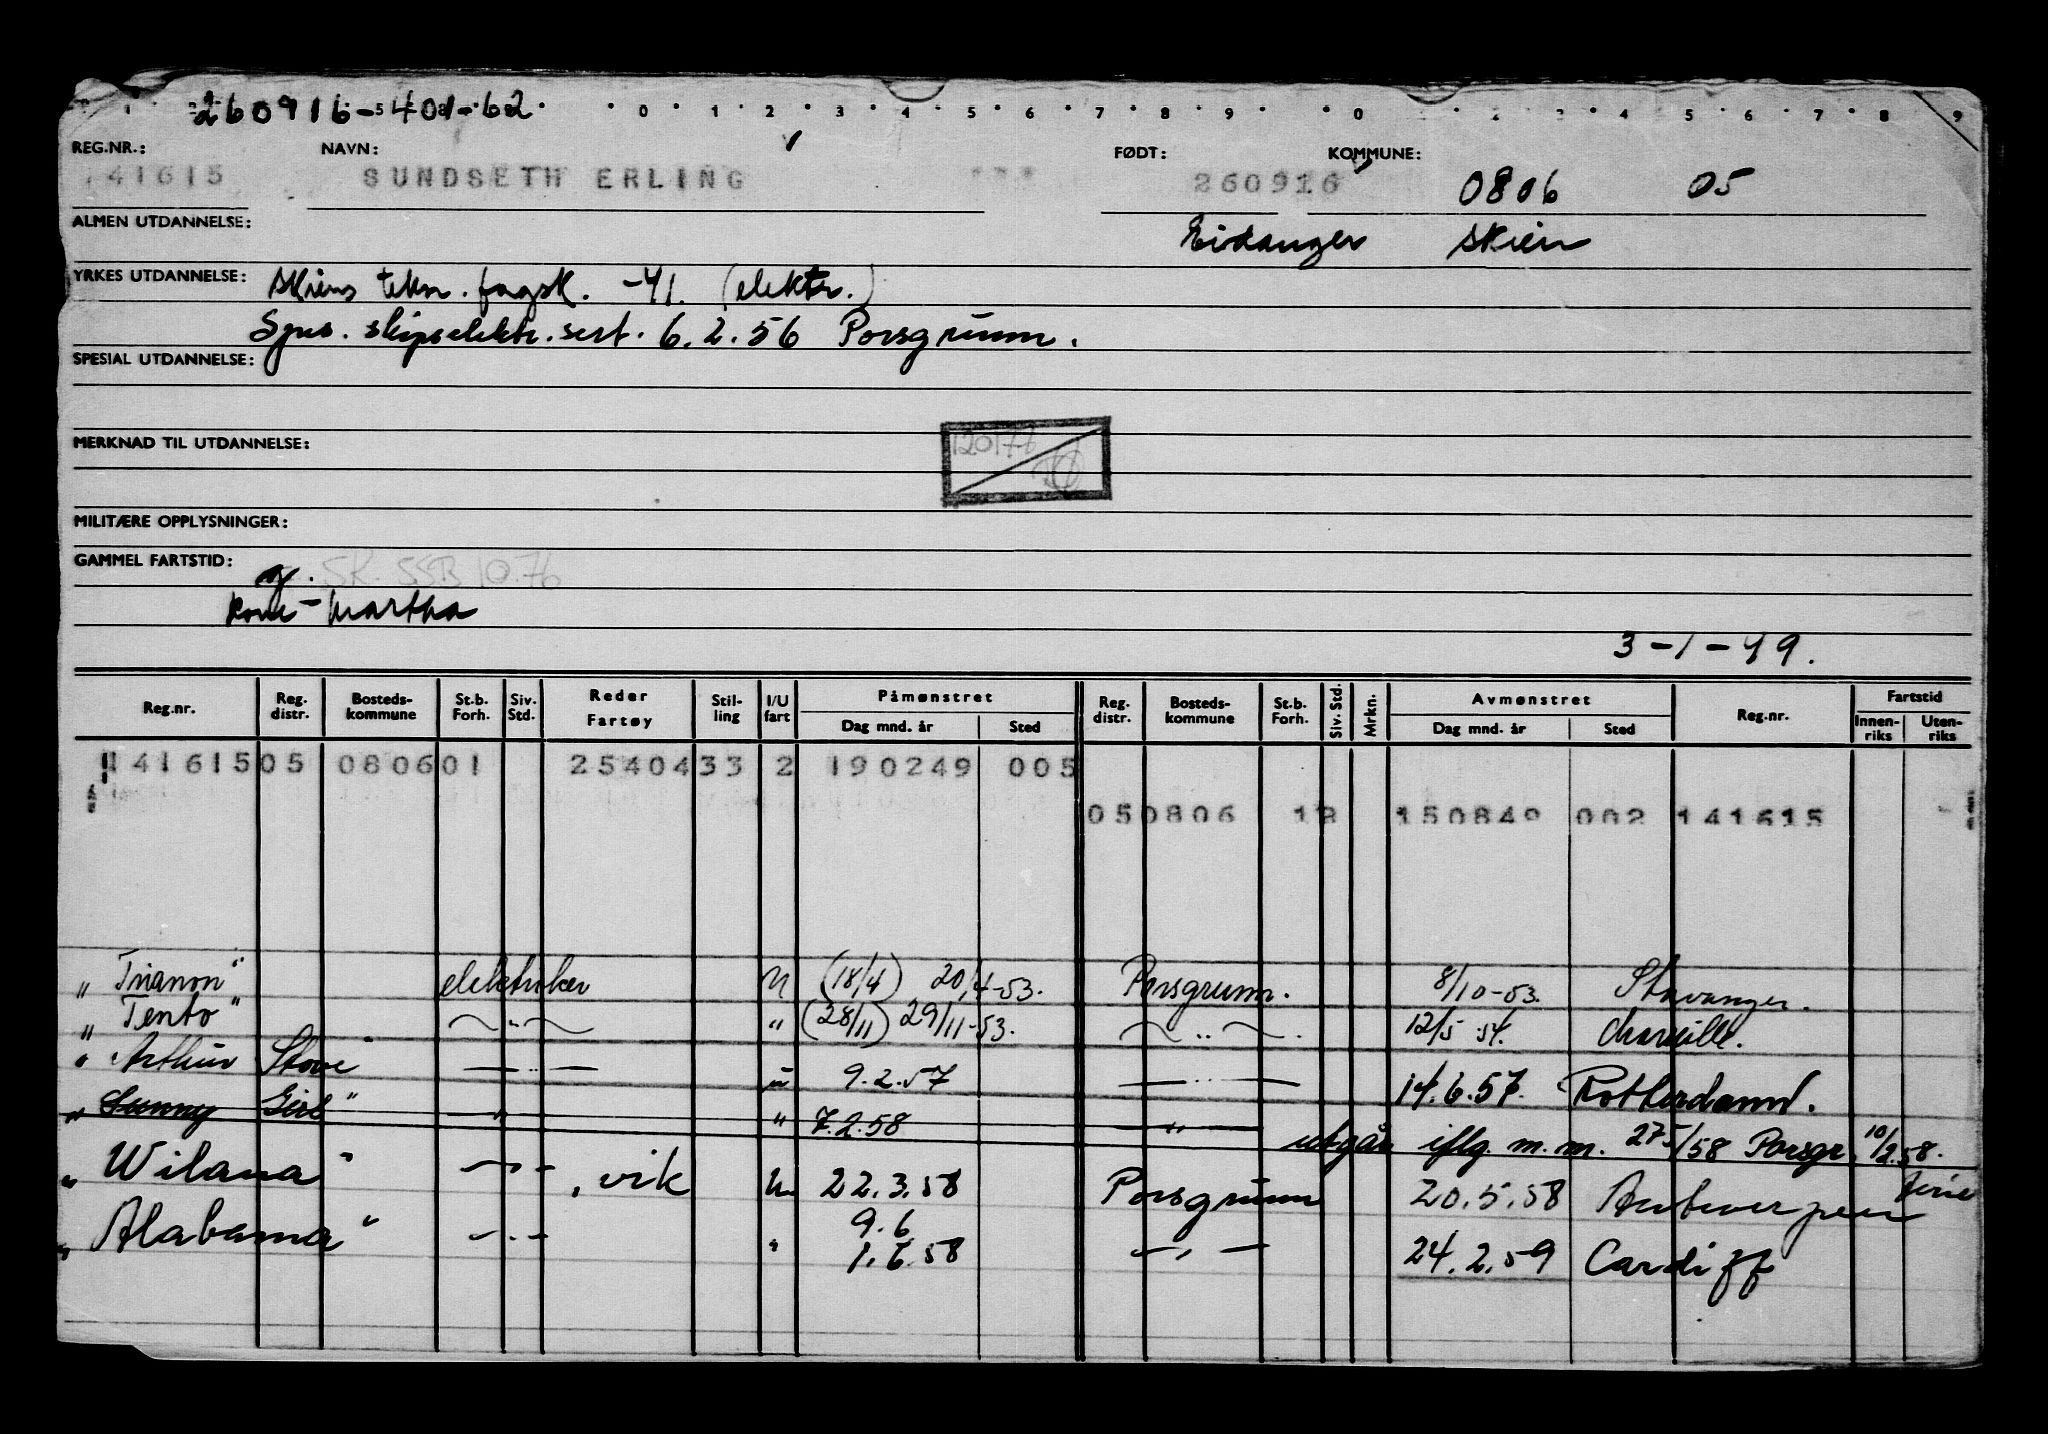 260916-401-62
0 1 2 3 4 5 6 7 8 9 0 2 4 5 6 7 8 9
REG.NR.: NAVN: FØDT: KOMMUNE:
141615 SUNDSETH ERLING 260916 0806 05
ALMEN UTDANNELSE: Eidanger Skien
YRKES UTDANNELSE: Skiens tekn. fagsk. -41. (elektr.)
Spes. skipselektr. sert. 6.2.56 Porsgrunn.
SPESIAL UTDANNELSE:
MERKNAD TIL UTDANNELSE:
120177
MILITÆRE OPPLYSNINGER:
GAMMEL FARTSTID: g. SK. SSB 10.76
kone - Martha
3-1-49.
Reg.nr. Reg. distr. Bosteds-kommune St.b. Forh. Siv. Std. Reder Fartøy Stil-ling I/U fart Påmønstret Dag mnd. år Sted Reg. distr. Bosteds-kommune St.b. Forh. Siv. Std. Mrkn. Avmønstret Dag mnd. år Sted Reg.nr. Fartstid Innen-riks Uten-riks
141615 05 0806 01 25404 33 2 190249 005
05 0806 12 150849 002 141615
"Trianon" elektriker U (18/4) 20/4-53. Porsgrunn. 8/10-53. Stavanger.
"Tento" — " — " (28/11) 29/11-53. — " — . 12/5 54.
"Arthur Stove" — " — u 9.2.57 — " — 14.6.57. Rotterdam.
"Sunny Girl" — " " 7.2.58 — " — utgår iflg. m.m. 275/58 Porsgr. 10/2.58.
"Wilana" — " — , vik U 22.3.58 Porsgrunn 20.5.58 Antwerpen ferie
"Alabama" — " — " 9.6 1.6.58 — " — 24.2.59 Cardiff